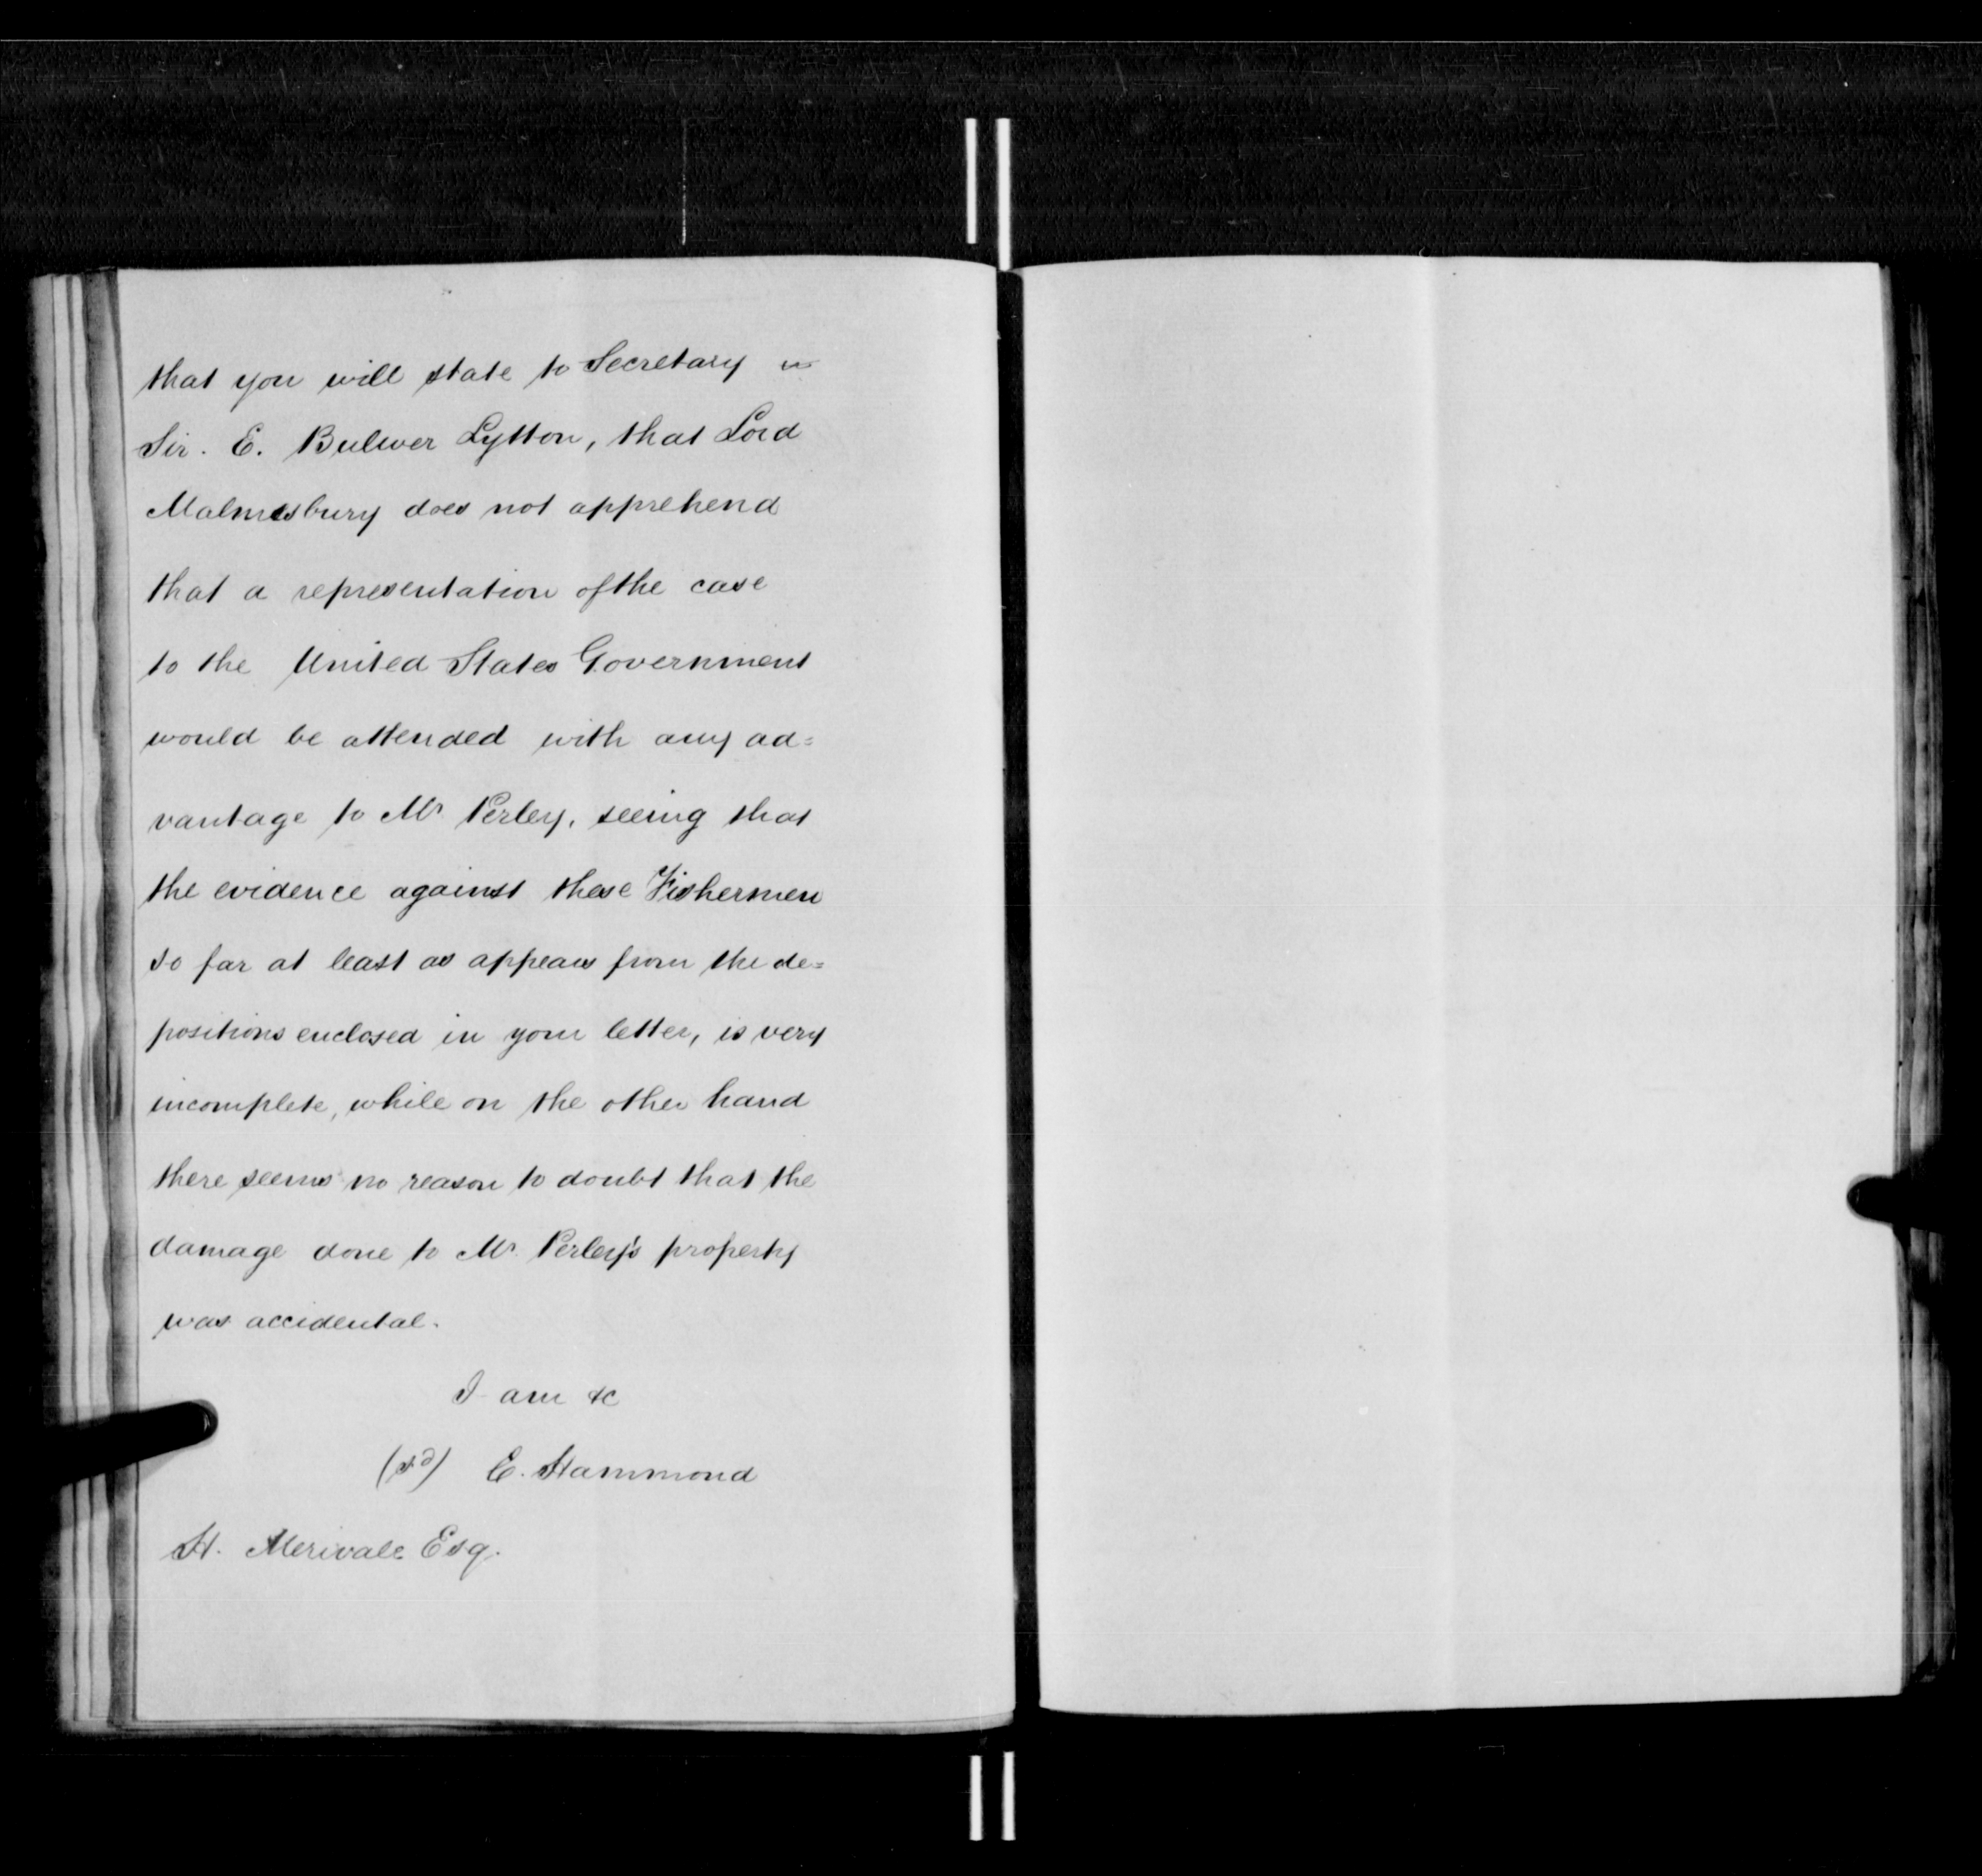 that you will state to Secretary
Sir. E. Bulwer Lytton, that Lord
Malmesbury does not apprehend
that a representation of the case
to the United States Government
would be attended with any ad=
vantage to Mr Perley, seeing that
the evidence against these Fishermen
so far at least as appears from the de=
positions enclosed in your letter, is very
incomplete, while on the other hand
there seems no reason to doubt that the
damage done to Mr. Perley's property
was accidental.
I am &c
(sd) E. Hammond
H. Merivale Esq.